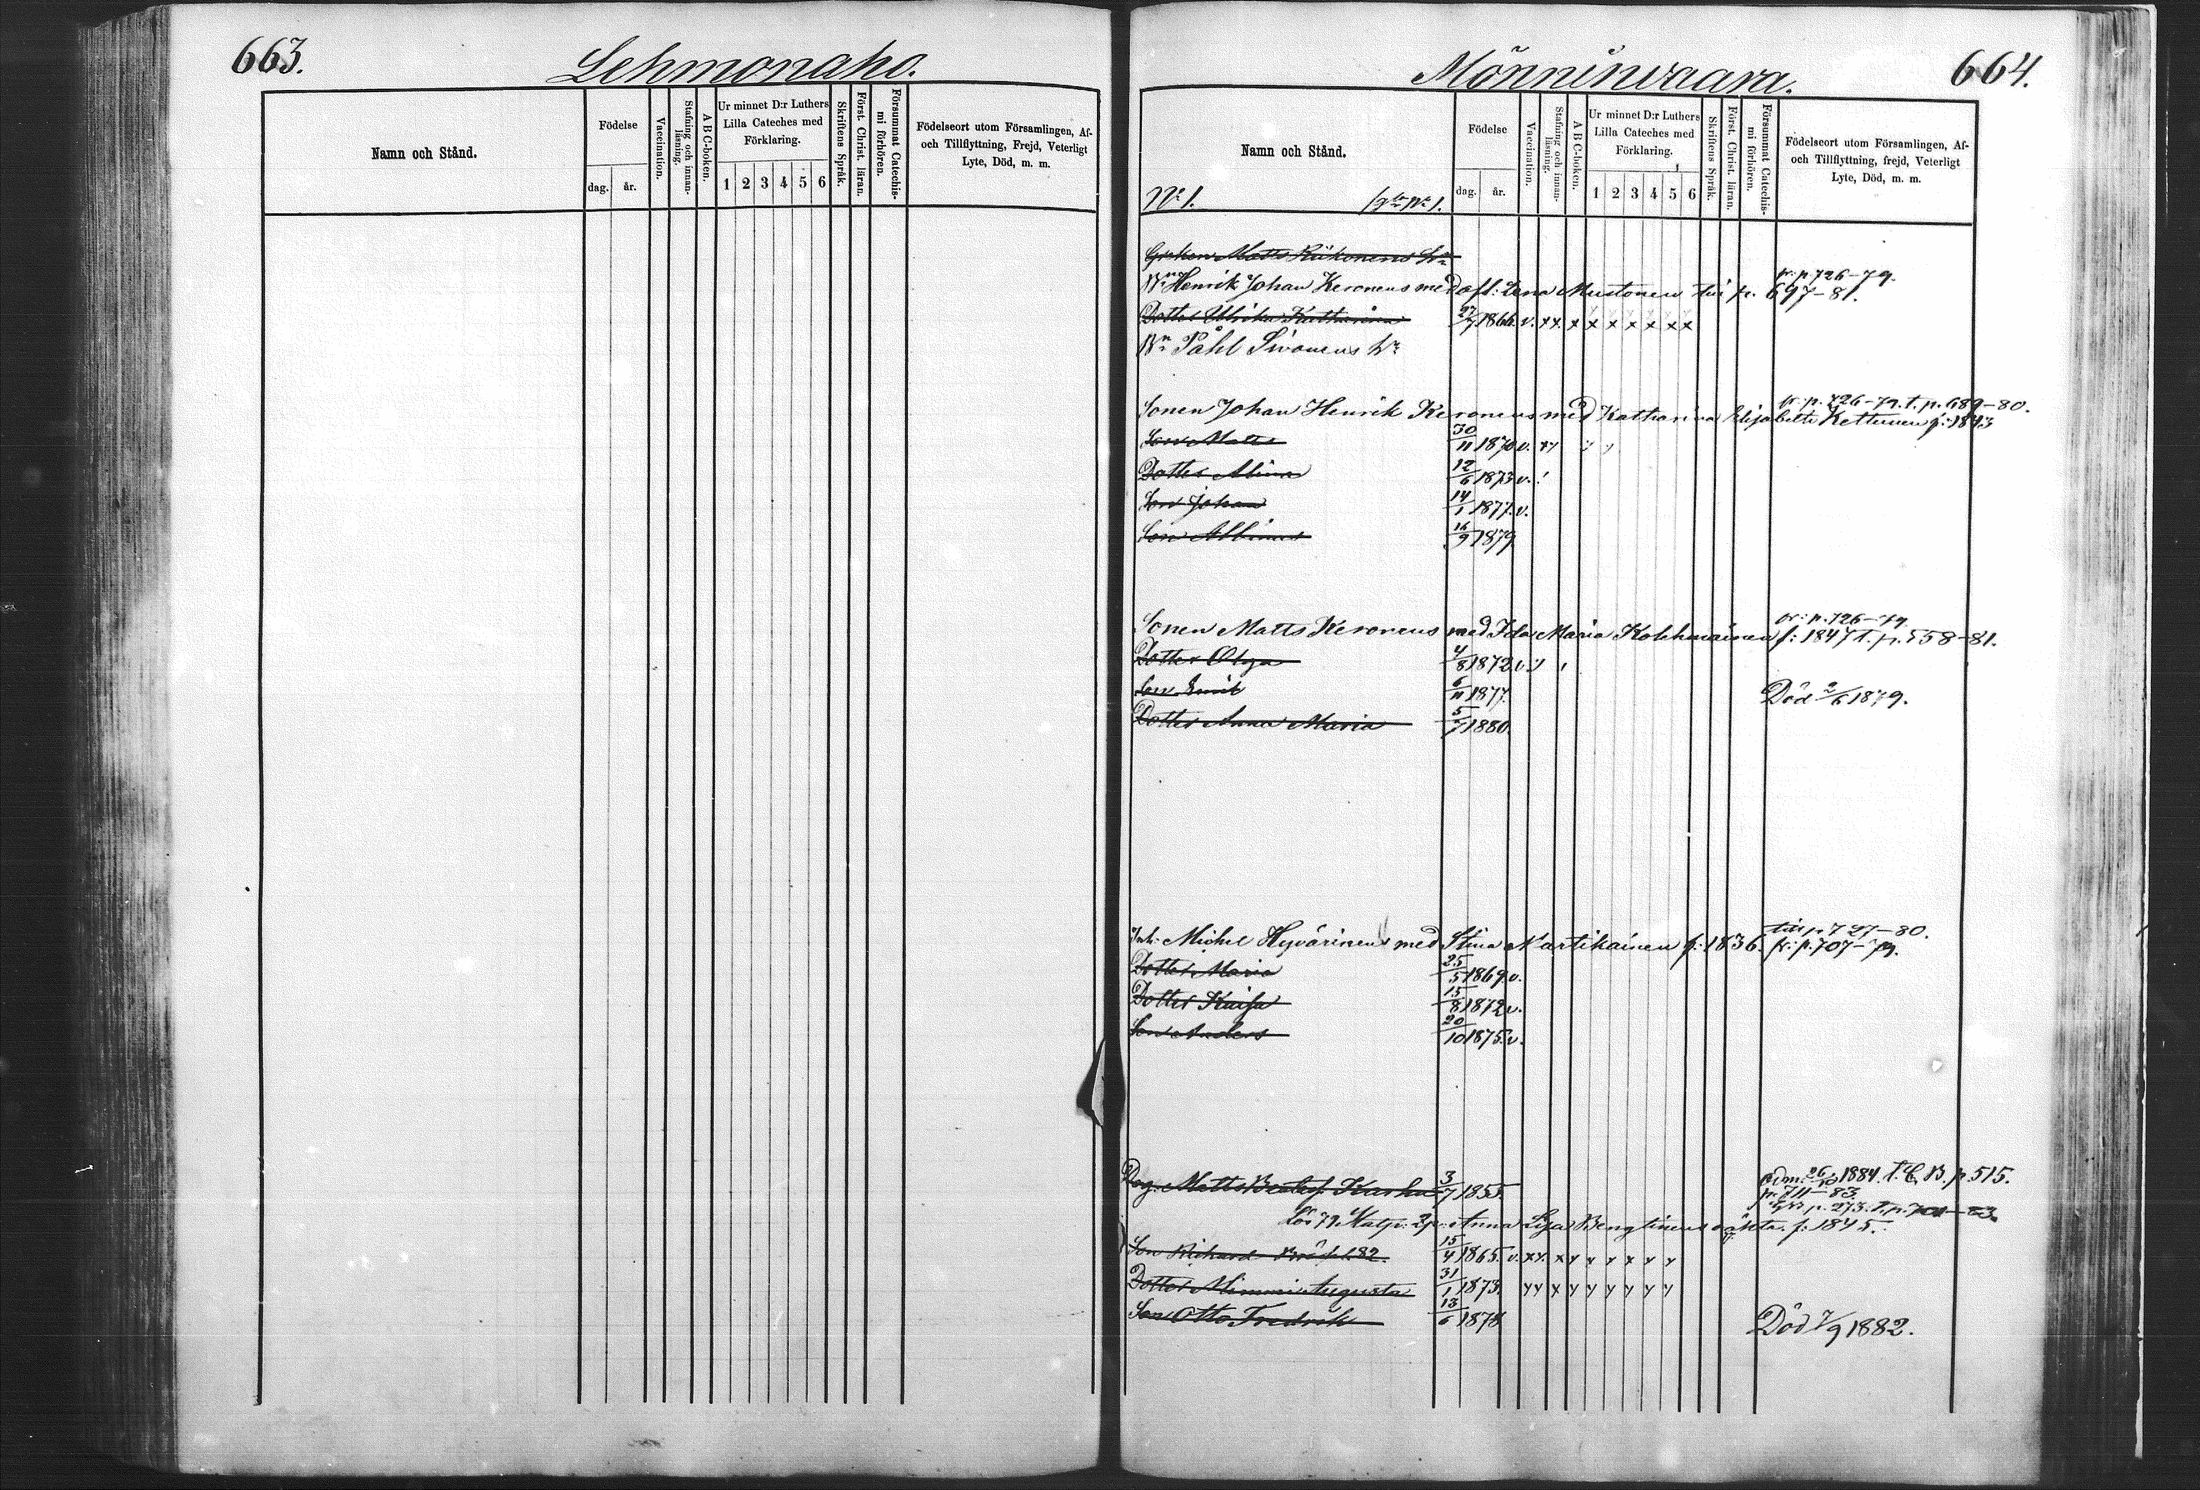 663.
Lehmonaho.
Namn och Stånd.
Födelse
dag. år.
Vaccination.
Stafning och innan-
läsning.
A B C-boken.
Ur minnet D:r Luthers
Lilla Cateches med
Förklaring.
1 2 3 4 5 6
Skriftens Språk.
Först. Christ. läran.
Försummat Catechis-
mi förhören.
Födelseort utom Församlingen, Af-
och Tillflyttning, Frejd, Veterligt
Lyte, Död, m. m.
Mönninwaara.
664.
Namn och Stånd.
N:o 1.
Födelse
dag. år.
Vaccination.
Stafning och innan-
läsning.
A B C-boken.
Ur minnet D:r Luthers
Lilla Cateches med
Förklaring.
1 2 3 4 5 6
Skriftens Språk.
Först. Christ. läran.
Försummat Catechis-
mi förhören.
Födelseort utom Församlingen, Af-
och Tillflyttning, frejd, Veterligt
Lyte, Död, m. m.
Matts
fr. p. 726-79.
Henrik Johan Keronens med afl: Lena Mustonen till p. 697-81.
Dotter Ulrika Katharina 27/7 1866. v. xx x x x x x x x
Påhl Sivonens
fr. p. 726-79. t. p. 689-80.
Sonen Johan Henrik Keronens med Katharina Elisabeth Kettunen f: 1843
Son Matts 30/11 1870 v.
Dotter Alina 12/6 1873 v.
Son Johan 14/1 1877. v.
Son Albinus 16/9 1879
fr. p. 726-79.
Sonen Matts Keronens med Ida Maria Kolehmainen f: 1847 t. p. 558-81.
Dotter Olga 4/8 1872 v.
Son Emil 6/11 1877. Död 2/6 1879.
Dotter Anna Maria 5/7 1880.
till p. 727-80.
Inh: Michel Hyvärinens med Stina Martikainen f: 1836. fr. p. 707-79.
Dotter Maria 25/5 1869. v.
Dotter Kaisa 15/8 1872 v.
Son Anders 20/10 1875. v.
Matts Karhu 3/7 1855
1884. t. C. B. p. 515.
p. 711-83.
p. 273.
Anna Lisa f: 1845.
Son Richard 15/4 1865. v. xx. x x x x x x x
Dotter Mimmi Augusta 31/1 1873. xx x x x x x x x
Son Otto Fredrik 13/6 1878 Död 7/9 1882.